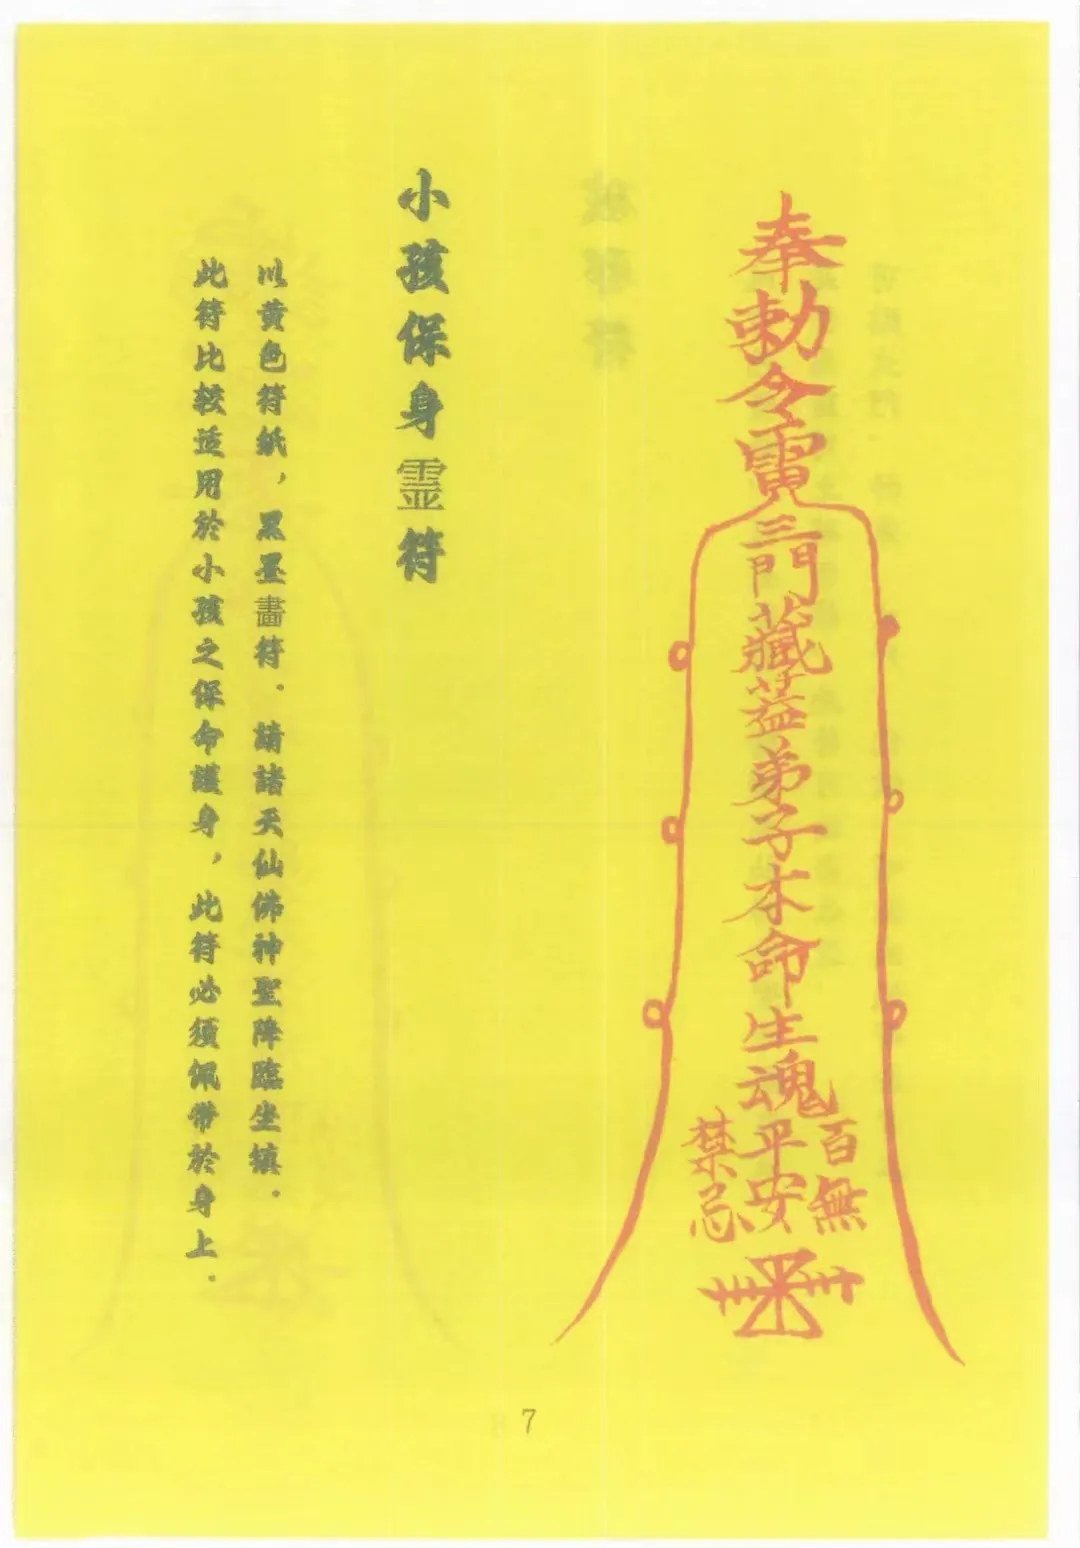 奉勅令雷
三門藏蓋弟子本命生魂
百無
平安
禁忌
小孩保身霊符
以黄色符紙，黒墨畵符．請諸天仙佛神聖降臨坐填．
此符比较适用於小孩之保命護身，此符必須佩带於身上．
7